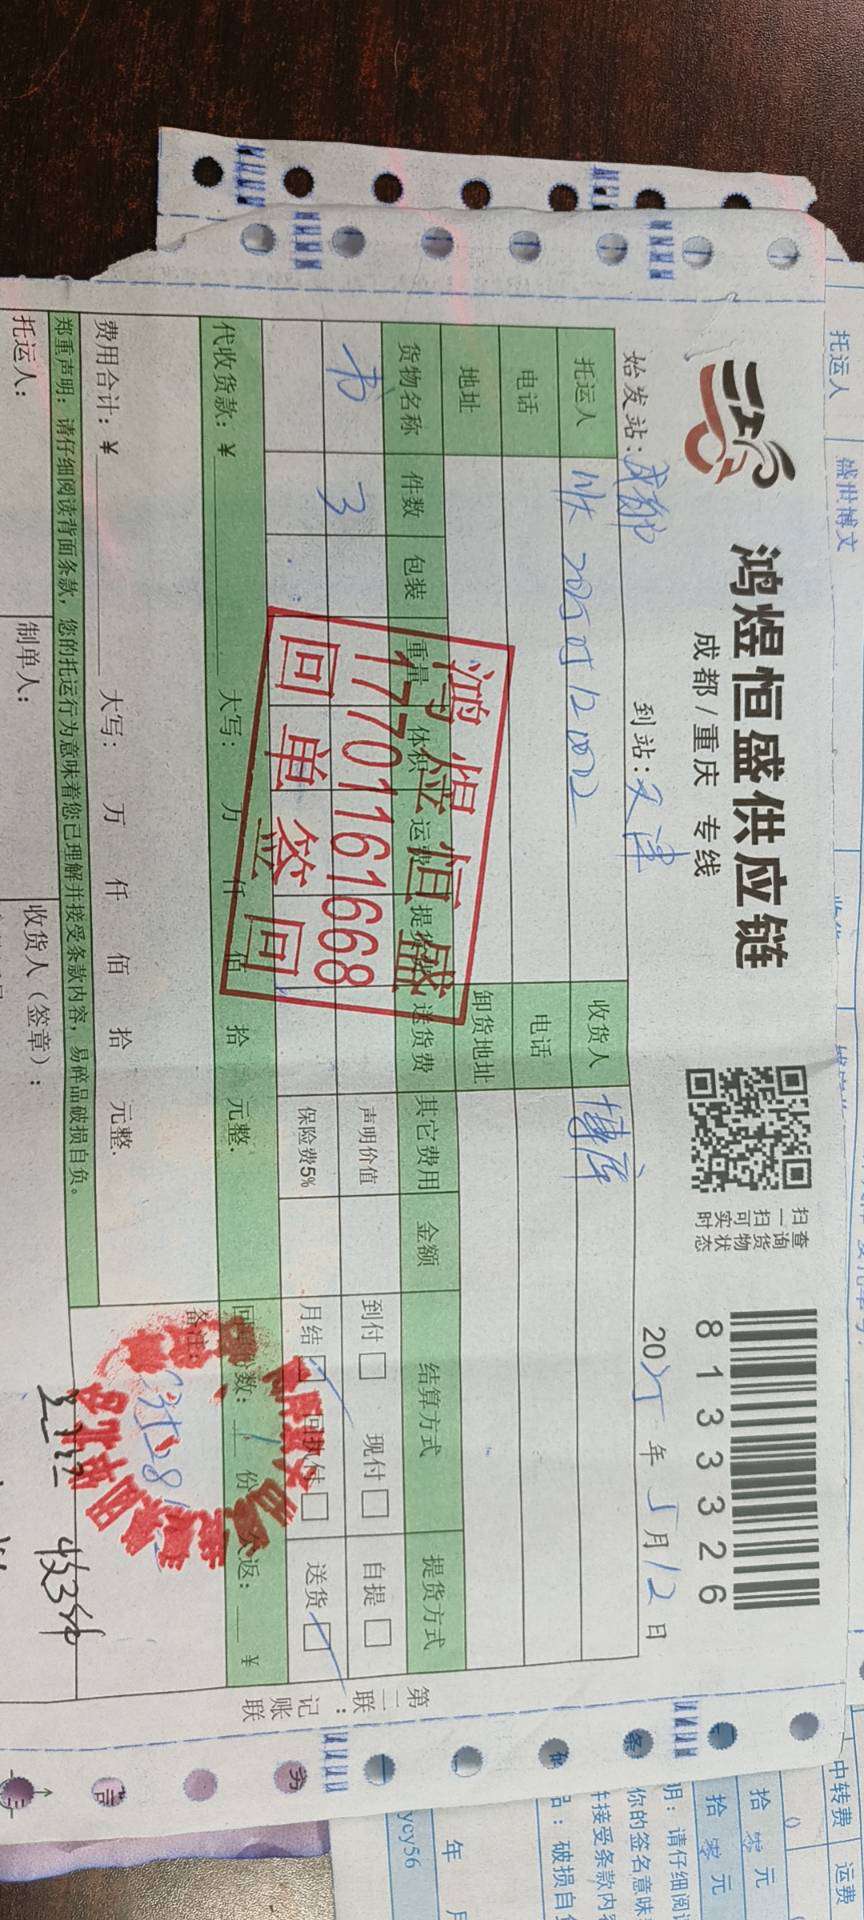 鸿煜恒盛供应链
成都/重庆 专线
扫一扫可实时
查询货物状态
8133326
始发站：成都 到站：天津 2025年5月12日
托运人 收货人 博库
电话 电话
地址 卸货地址
货物名称 件数 包装 重量 体积 运费 提货费 送货费 其它费用 金额 结算方式 提货方式
书 3 声明价值 到付 现付 自提
保险费5% 月结 回执付 送货
鸿煜恒盛
17701161668
回单签回
代收货款：￥ 大写： 万 仟 佰 拾 元整. 回单份数：1份 欠返： ￥
备注：
费用合计：￥ 大写： 万 仟 佰 拾 元整.
郑重声明：请仔细阅读背面条款，您的托运行为意味着您已理解并接受条款内容，易碎品破损自负。
托运人： 制单人： 收货人（签章）：
收3件
第二联：记账联
托运人 盛世博文
中转费 运费
拾 零 元
拾 零 元
明：请仔细阅读
你的签名意味
接受条款内容
品：破损自负
ycy56
年 月